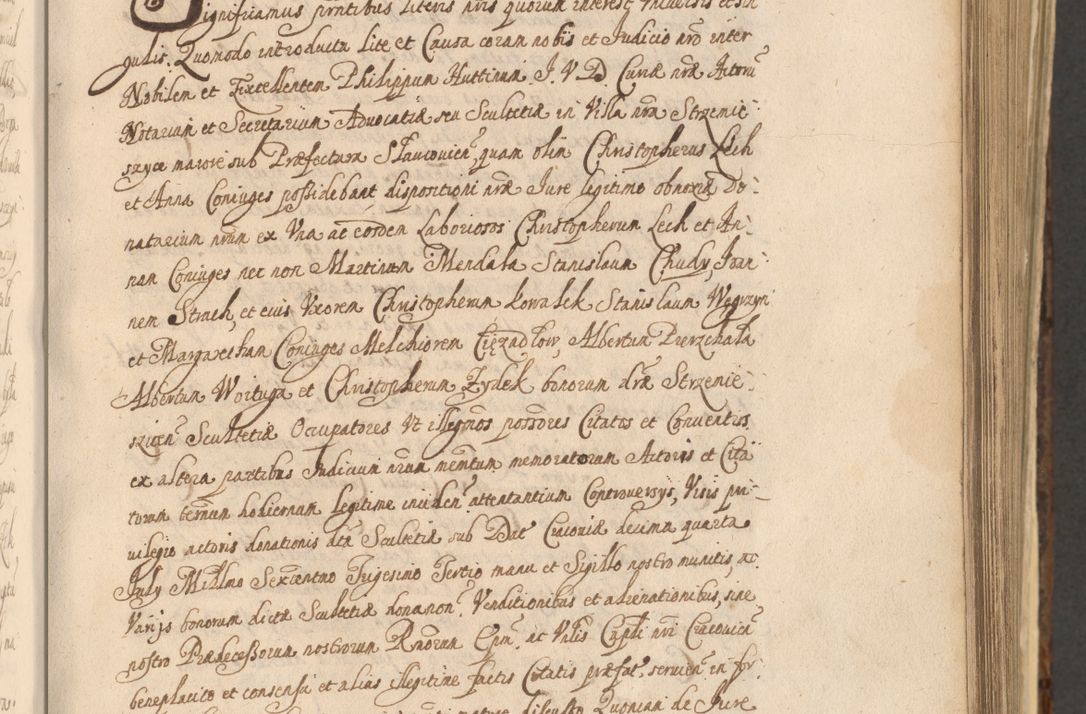 Significamus prntibus literis nris quorum interest, universis et sin
gulis. Quomodo introducta lite et Causa coram nobis et Judicio nro inter
Nobilem et Excellentem Philippum Huttinni J. V. D. Curiæ nræ Actorū
Notarium et Secretarium Advocatiæ seu Scultetiæ in Villa nra Strzemie:
szyce maiore sub Præfectura Slawcovien, quam olim Christopherus Lech
et Anna Coniuges possidebant dispositioni nræ Jure legitimo obnoxiæ Do:
natarium nrum ex Vna ac eosdem Laboriosos Christopherum Lech et An:
nam Coniuges nec non Martinum Mendala Stanislaum Chudy, Joan:
nem Strach, et eius Vxorem Christopherum Kowalek Stanislaum Węgrzyn
et Margaretham Coniuges Melchiorem Cięzadłow, Albertum Pierzchała
Albertum Woituga et Christopherum Zydek bonorum dræ Strzemie:
szicen Scultetiæ Occupatores Vt illegmos possores Citatos et Conventos
ex altera partibus Judicium nrum memtum memoratorum Actoris et Cita
torum ternum hodiernum legitime inciden attentantium Controversys, Visis pri
uilegio actoris donationis dctæ Scultetiæ sub Dat Cracoviæ decima quarta
July Millmo Sexcentmo Trigesimo Tertio manu et Sigillo nostro munitis, ac
Varijs bonorum dictæ Scultetiæ donanon Venditionibus et alienationibus, sine
nostro Prædecessorum nostrorum Rnorum Epm ac Vnlis Capli nri Cracovien
beneplacito et consensu et alias illegitime factis Citatis præfat, servien in for:
mature discusso Quoniam de Jure